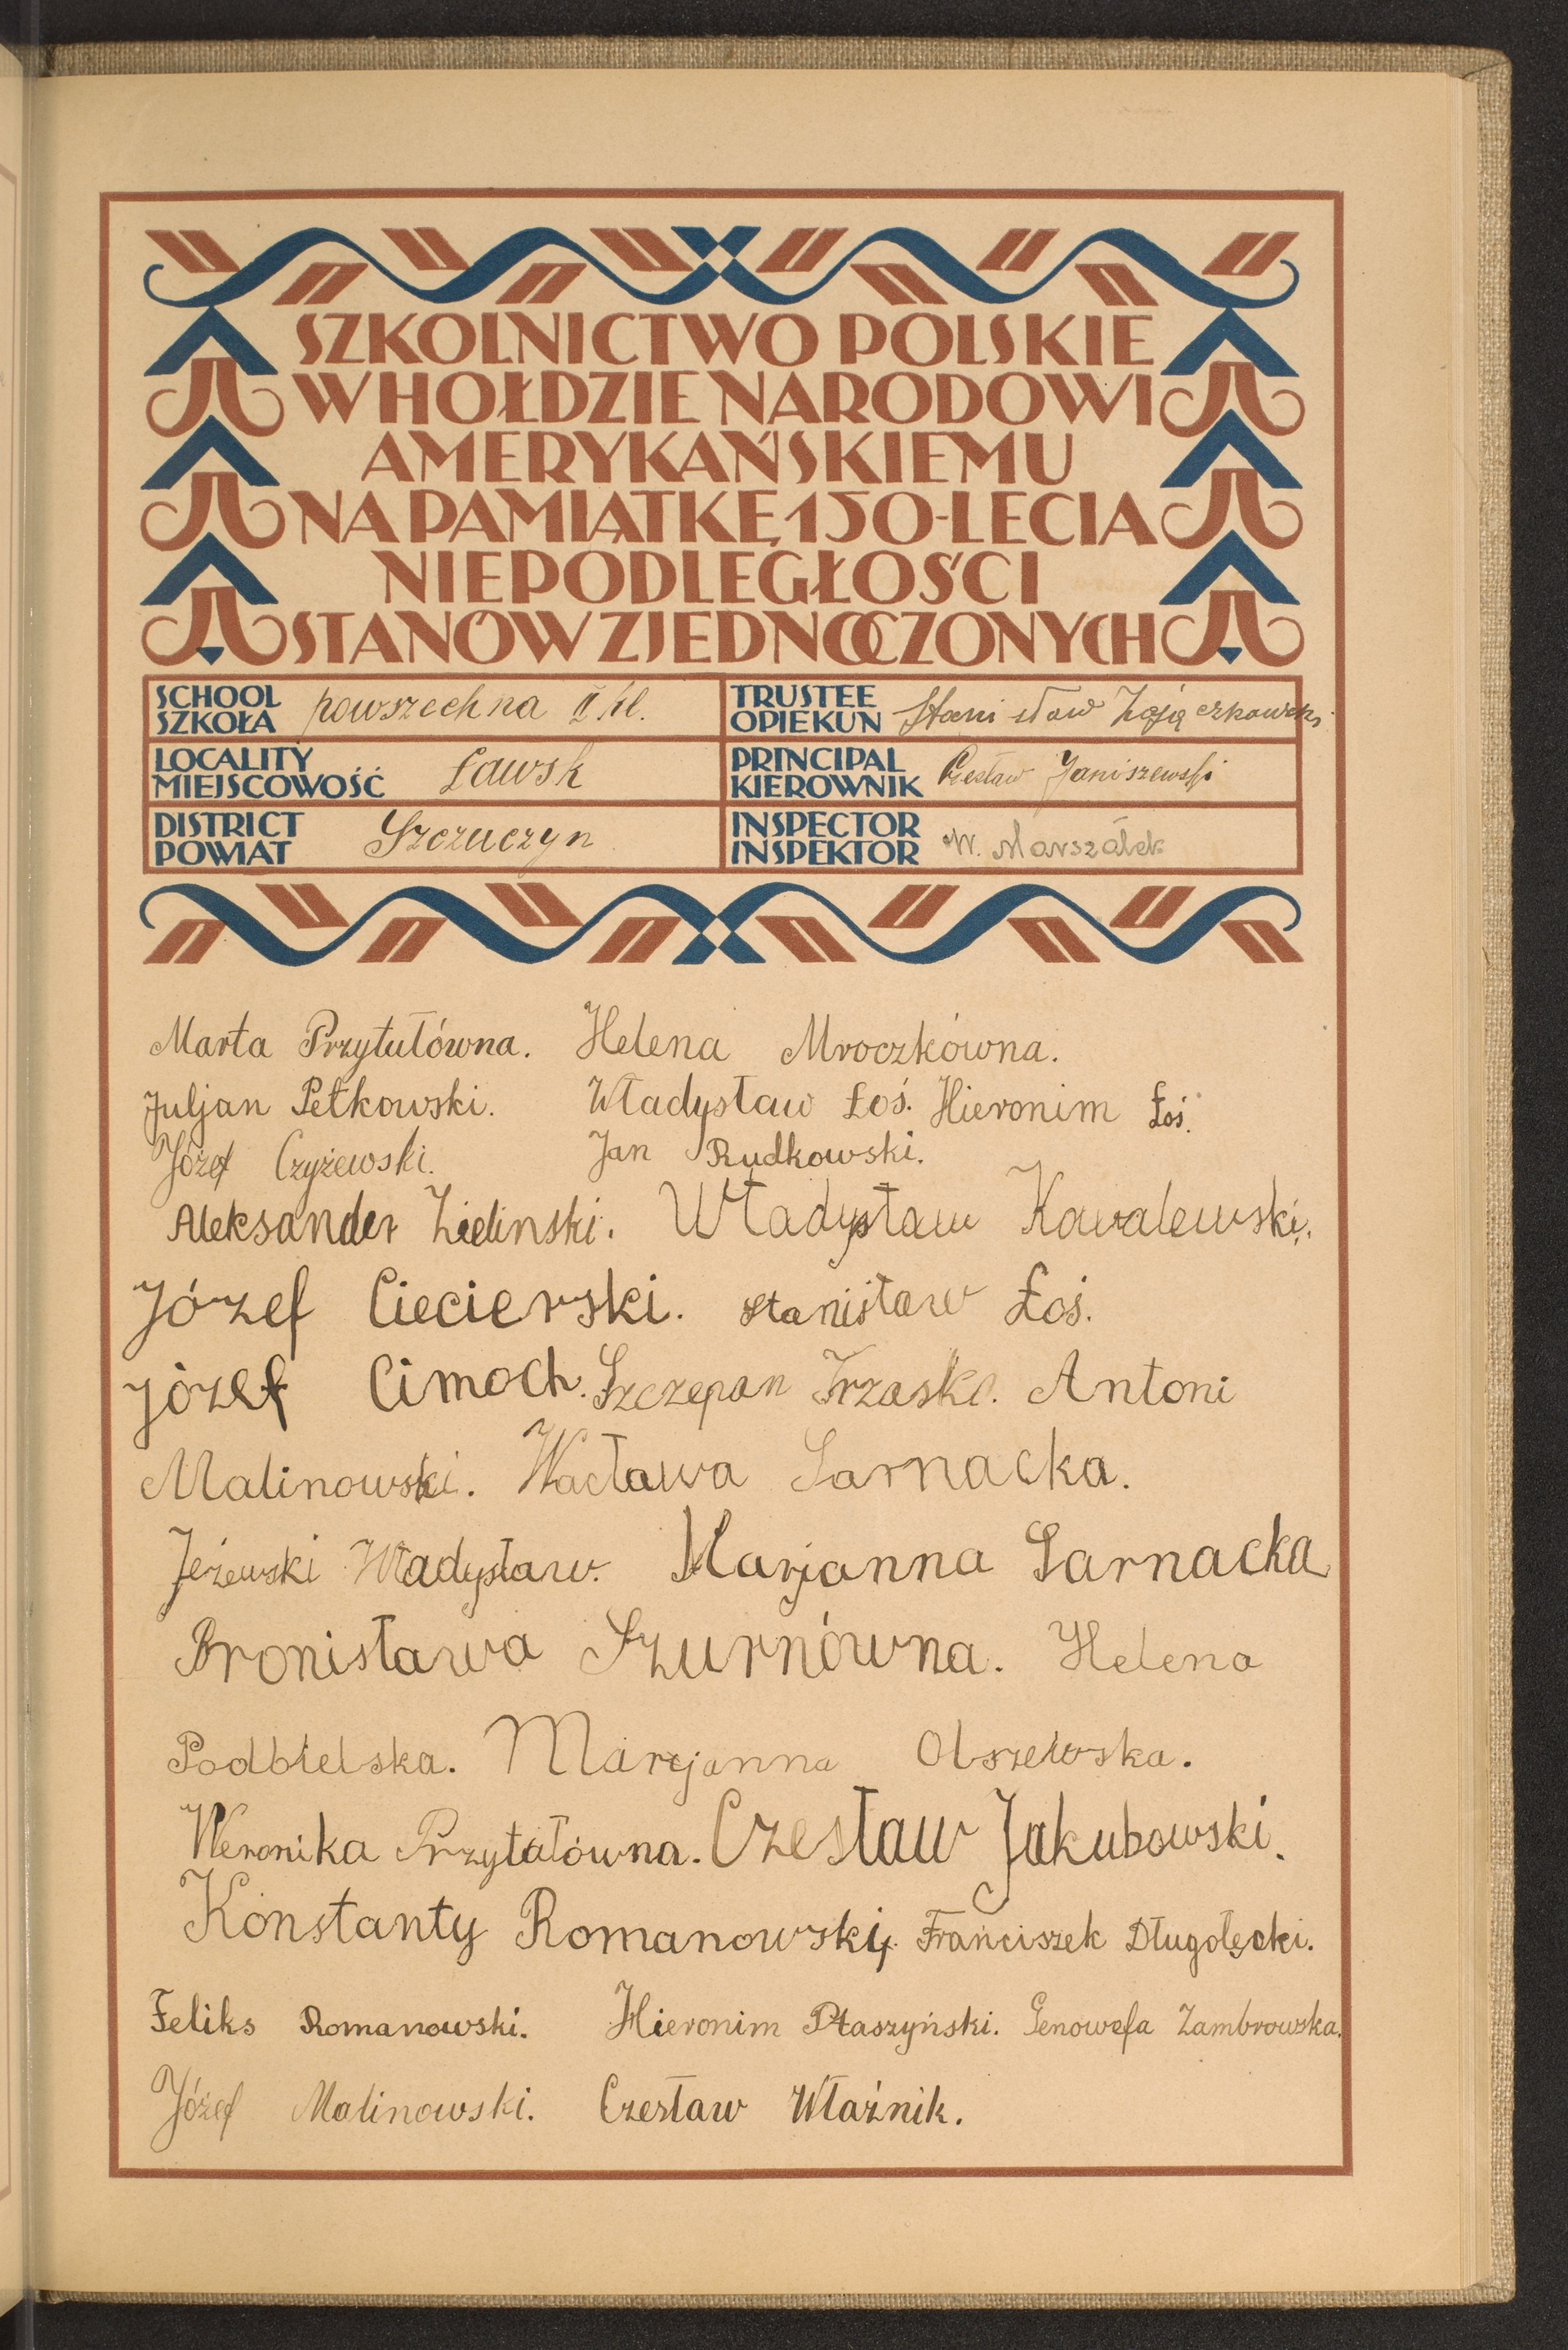 SZKOLNICTWO POLSKIE
W HOŁDZIE NARODOWI
AMERYKAŃSKIEMU
NA PAMIĄTKĘ 150-LECIA
NIEPODLEGŁOŚCI
STANÓW ZJEDNOCZONYCH
SCHOOL
SZKOŁA powszechna II kl.
TRUSTEE
OPIEKUN Stanisław Zajączkowski
LOCALITY
MIEJSCOWOŚĆ Ławsk
PRINCIPAL
KIEROWNIK Czesław Janiszewski
DISTRICT
POWIAT Szczuczyn
INSPECTOR
INSPEKTOR W. Marszałek
Marta Przytułówna. Helena Mroczkówna.
Juljan Petkowski. Władysław Łoś. Hieronim Łoś.
Józef Czyżewski. Jan Rudkowski.
Aleksander Zielinski. Władysław Kowalewski.
Józef Ciecierski. Stanisław Łoś.
Józef Cimoch. Szczepan Trzaska. Antoni
Malinowski. Wacława Sarnacka.
Jeżewski Władysław. Marjanna Sarnacka
Bronisława Szurnówna. Helena
Podbielska. Marjanna Olszewska.
Weronika Przytułówna. Czesław Jakubowski.
Konstanty Romanowski. Franciszek Długołęcki.
Feliks Romanowski. Hieronim Ptaszyński. Genowefa Zambrowska.
Józef Malinowski. Czesław Właźnik.